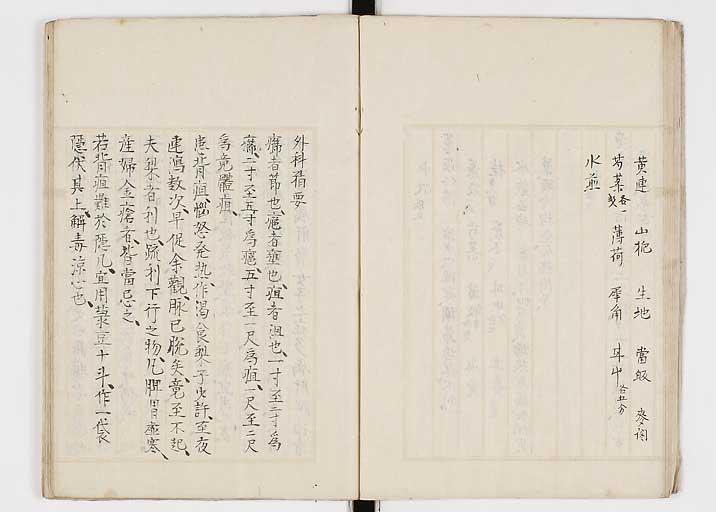 黄連 山梔 生地 當皈 麥門
芍薬各一戔 薄荷 犀角 甘艸各五分
水煎
外科精要
癤者節也癰者壅也疽者沮也一寸至二寸為
癤二寸至五寸為癰五寸至一尺為疽一尺至二尺
為竟體疽
患背疽惱怒発热作渴食梨子少許至夜
連瀉数次早促余觀脉已脱矣竟至不起
夫梨者利也疏利下行之物凡脾胃虚寒
産婦金瘡者皆當忌之
若背疽難於隠几宜用菉豆十斗作一袋
隠伏其上解毒涼心也